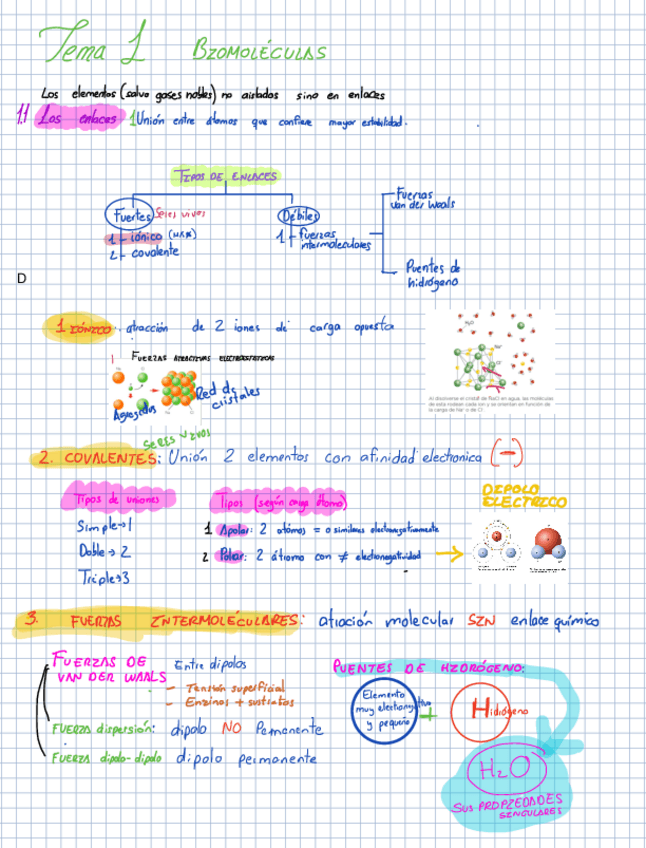 Tema 1 BIOMOLÉCULAS
Los elementos (salvo gases nobles) no aislados sino en enlaces
1.1 Los enlaces 1 Unión entre átomos que confiere mayor estabilidad.
TIPOS DE ENLACES
Fuertes Seres vivos
1 - iónico
2 - covalente
Débiles
1 - fuerzas
intermoleculares
Fuerzas
van der Waals
Puentes de
hidrógeno
D
1 IÓNICO: atracción de 2 iones de carga opuesta
FUERZAS ATRACTIVAS ELECTROSTÁTICAS
Agregados
Red de
cristales
Al disolverse el cristal de NaCl en agua, las moléculas
de esta rodean cada ion y se orientan en función de
la carga de Na+ o de Cl-
SERES VIVOS
2. COVALENTES: Unión 2 elementos con afinidad electronica (-)
Tipos de uniones
Simple→1
Doble→2
Triple→3
Tipos (según carga átomo)
1 Apolar: 2 atomos = o similares electronegativamente
2 Polar: 2 átromo con ≠ electronegatividad
DIPOLO
ELECTRICO
3. FUERZAS INTERMOLÉCULARES: atracción molecular SIN enlace químico
FUERZAS DE
VAN DER WAALS
Entre dipolos
- Tensión superficial
- Enzimas + sustratos
FUERZA dispersión: dipolo NO Permanente
FUERZA dipolo-dipolo dipolo permanente
PUENTES DE HIDRÓGENO:
Elemento
muy electronegativo
y pequño
+
Hidrógeno
H2O
SUS PROPIEDADES
SINGULARES